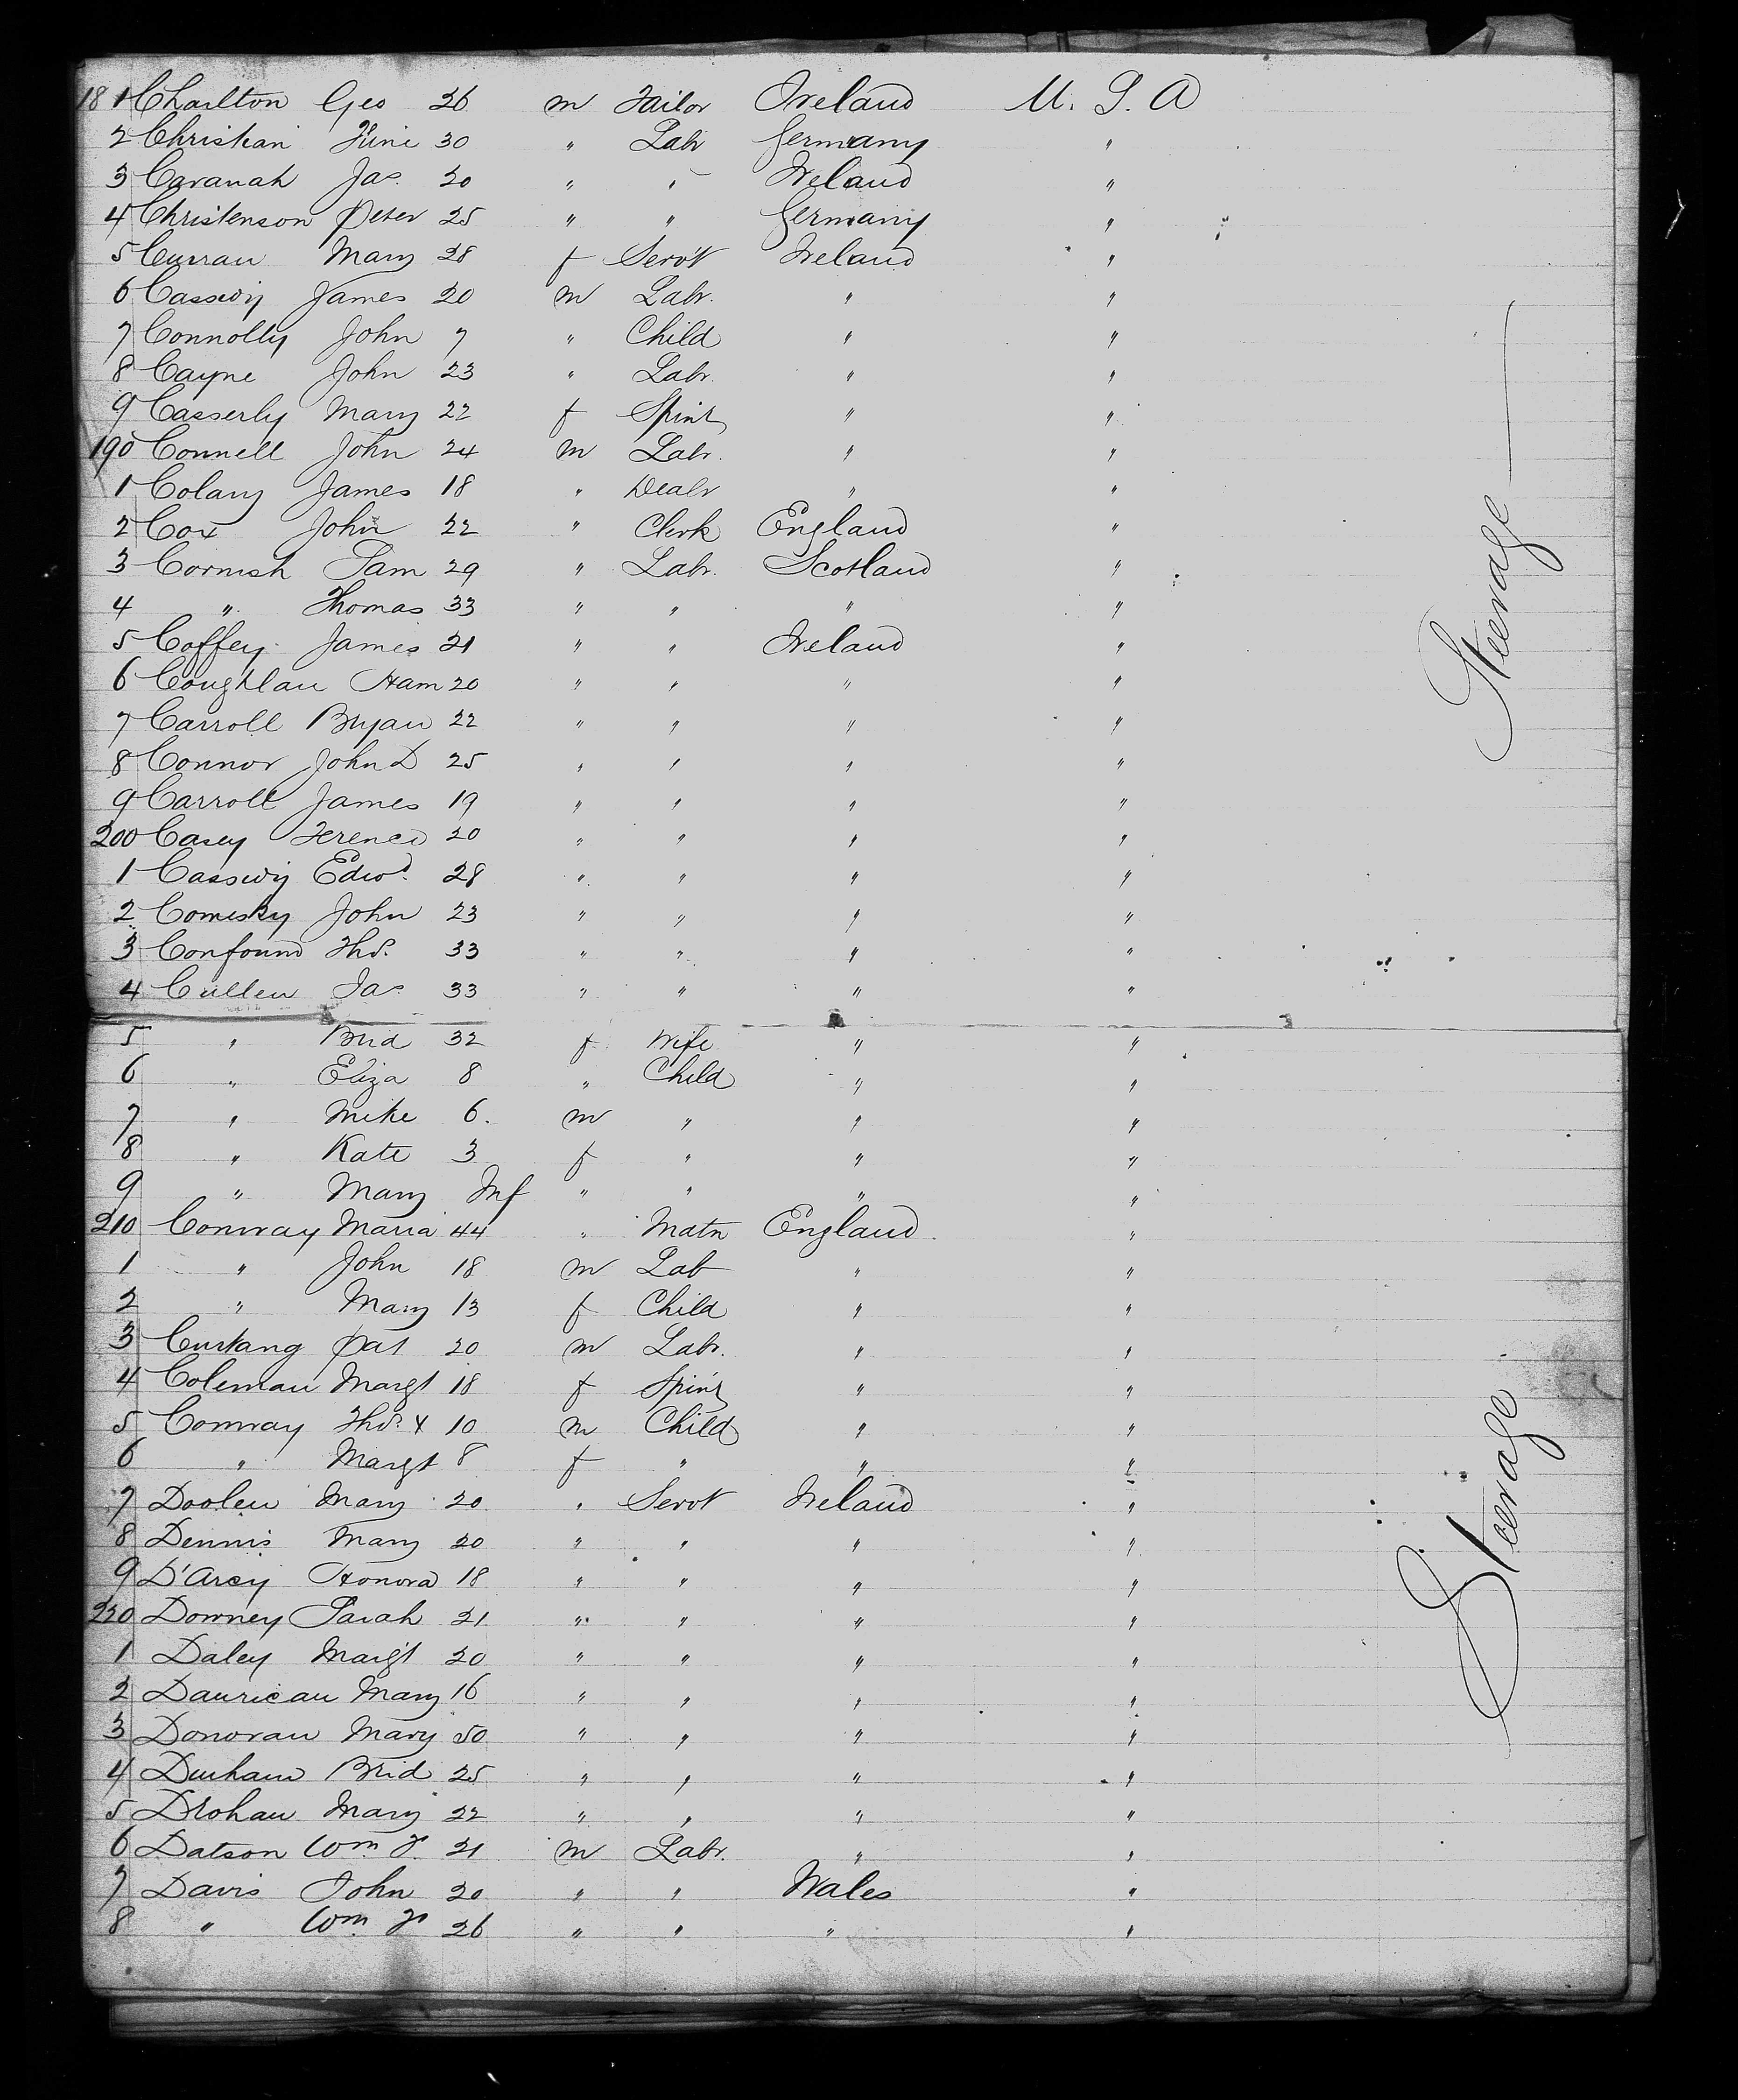 181 Charlton Geo 26 m Tailor Ireland U. S. A
2 Christian Juni 30 " Labr Germany "
3 Cavanah Jas. 20 " " Ireland "
4 Christenson Peter 25 " " Germany "
5 Curran Mary 28 f Servt Ireland "
6 Casswy James 20 m Labr. " "
7 Connolly John 7 " Child " "
8 Cayne John 23 " Labr. " "
9 Casserly Mary 22 f Spinr " "
190 Connell John 24 m Labr. " "
1 Colany James 18 " Dealr " "
2 Cox John 22 " Clerk England "
3 Cornish Sam 29 " Labr. Scotland "
4 " Thomas 33 " " " "
5 Coffey James 21 " " Ireland "
6 Coughlan Ham 20 " " " "
7 Carroll Bryan 22 " " " "
8 Connor John D 25 " " " "
9 Carroll James 19 " " " "
200 Casey Terence 20 " " " "
1 Casswy Edwd. 28 " " " "
2 Comesky John 23 " " " "
3 Confound Thos. 33 " " " "
4 Cullen Jas 33 " " " "
5 " Brid 32 f Wife " "
6 " Eliza 8 " Child " "
7 " Mike 6. m " " "
8 " Kate 3 f " " "
9 " Mary Inf " " " "
210 Conway Maria 44 " Matn England "
1 " John 18 m Lab " "
2 " Mary 13 f Child " "
3 Pat 20 m Labr. " "
4 Coleman Margt 18 f Spinr " "
5 Conway Thos. 10 m Child " "
6 " Margt 8 f " " "
7 Doolen Mary 20 " Servt Ireland "
8 Dennis Mary 20 " " " "
9 D'Arcy Honora 18 " " " "
220 Downey Sarah 21 " " " "
1 Daley Margt 20 " " " "
2 Dauricau Mary 16 " " " "
3 Donovan Mary 50 " " " "
4 Durham Brid 25 " " " "
5 Drohan Mary 22 " " " "
6 Datson Wm J. 21 m Labr. " "
7 Davis John 20 " " Wales "
8 " Wm J 26 " " " "
Steerage
Steerage